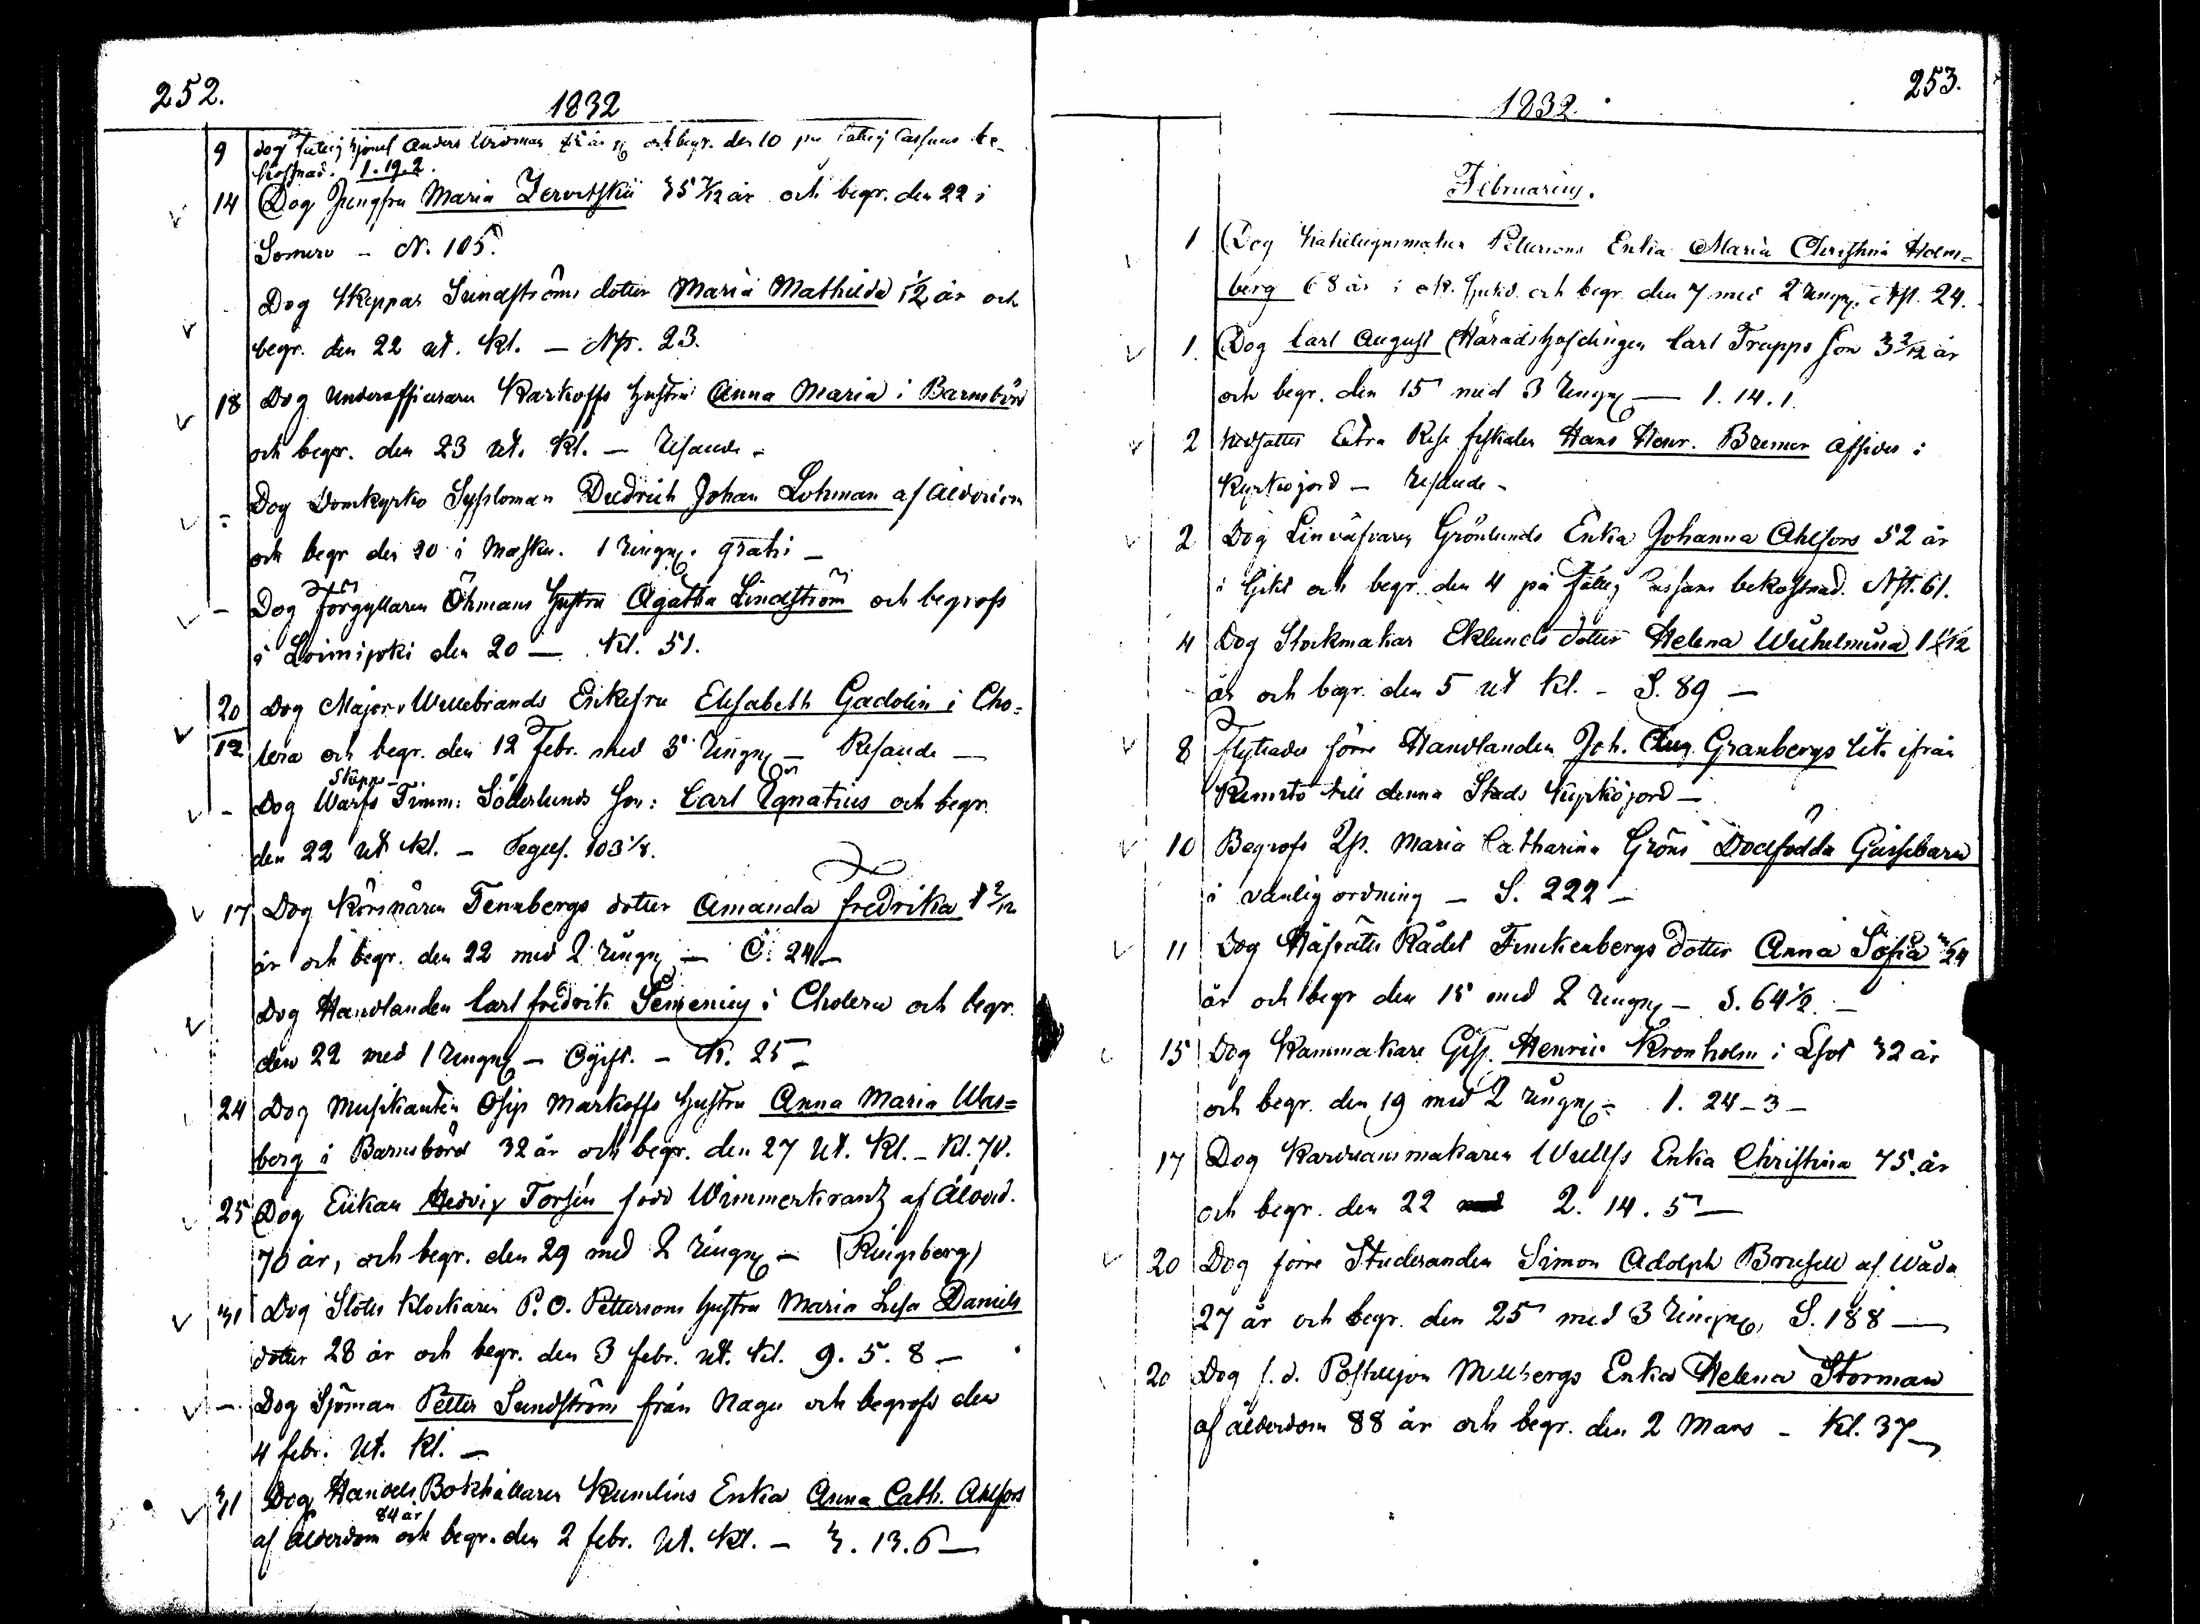 252.
1832
9 dog fattig hjonet Anders Widman år och begr. den 10 på fattig Cassans be-
kostnad. 1.19.2.
14 Dog Jungfru Maria Zervitskii 35 7/12 år och begr. den 22 i
Somero - N. 105.
Dog Skeppar Sundströms dotter Maria Mathilda 1/2 år och
begr. den 22 ut. kl. - Nst. 23.
18 Dog Underofficeraren Karkoffs hustru Anna Maria i Barnsbörd
och begr. den 23 ut. kl. - Resande -
- Dog Domkyrko Sysloman Diedrich Johan Lohman af Ålderdom
och begr den 20 i Masku. 1 Ringng. gratis -
- Dog Förgyllaren Öhmans hustru Agatha Lindström och begrofs
i Loimijoki den 20 - Kl. 51.
20 Dog Major v Willebrands Enkefru Elisabeth Gadolin i Cho-
12 lera och begr. den 12 Febr. med 3 Ringng - Resande -
Skepps-
- Dog Warfs Timm: Söderlunds son: Carl Ignatius och begr.
den 22 ut kl. - Tegels. 103 1/8.
17 Dog Körsnären Tennbergs dotter Amanda Fredrika 1 2/12
år och begr. den 22 med 2 Ringng - C. 24 -
Dog Handlanden Carl Fredrik i Cholera och begr.
den 22 med 1 Ringng - Ogift. - N. 25 -
24 Dog Musikanten Osip Markoffs hustru Anna Maria Was=
berg i Barnsbörd 32 år och begr. den 27 ut. kl. - Kl. 70.
25 Dog Enkan Hedvig Forsén född Wimmerkrantz af Ålderd.
70 år, och begr. den 29 med 2 Ringng - (Ringsberg)
31 Dog Slotts Klockaren P. O. Pettersons hustru Maria Lisa Daniels
dotter 28 år och begr. den 3 febr. ut. kl. 9. 5. 8 -
- Dog Sjöman Petter Sundström från Nagu och begrofs den
4 febr. ut. kl. -
31 Dog Handels Bokhållaren Kumlins Enka Anna Cath. Ahlfors
84 år
af ålderdom och begr. den 2 febr. ut. kl. - 3. 13. 6 -
253.
1832.
Februarius.
1 Dog Kakelugnsmakar Petersons Enka Maria Christina Holm=
berg 68 år i ok. sjukd. och begr. den 7 med 2 Ringng. Nst. 24.
1. Dog Carl August Häradshöfdingen Carl Trapps son 3 3/12 år
och begr. den 15 med 3 Ringng - 1. 14. 1.
2 Nedsattes Extra Rese fiskalen Hans Henr. Bremer assides i
Kyrkojord - Resande -
2 Dog Linväfvaren Grönlunds Enka Johanna Ahlfors 52 år
i Gikt och begr. den 4 på fattig Cassans bekostnad. Nst. 61.
4 Dog Stockmakar Eklunds dotter Helena Wilhelmina 1 1/12
år och begr. den 5 ut kl. - S. 89 -
8 flyttades förre Handlanden Joh. Aug. Granbergs lik ifrån
Rimito till denna Stads Kyrkojord -
10 Begrofs Qp. Maria Catharina Gröns Dödfödda Gossebarn
i vanlig ordning - S. 222 -
11 Dog Häfrätts Rådet Finckenbergs dotter Anna Sofia /24
år och begr den 15 med 2 Ringng - S. 64 1/2. -
15 Dog Kammakare Gess. Henric Kronholm i Lsot 32 år
och begr. den 19 med 2 Ringng - 1. 24 - 3 -
17 Dog Karduansmakaren Wulffs Enka Christina 75 år
och begr. den 22 2. 14. 5 -
20 Dog förre Studeranden Simon Adolph Brusell af Wåda
27 år och begr. den 25 med 3 Ringng, S. 188 -
20 Dog f. d. Postiljon Millbergs Enka Helena Storman
af ålderdom 88 år och begr. den 2 Mars - Kl. 37 -